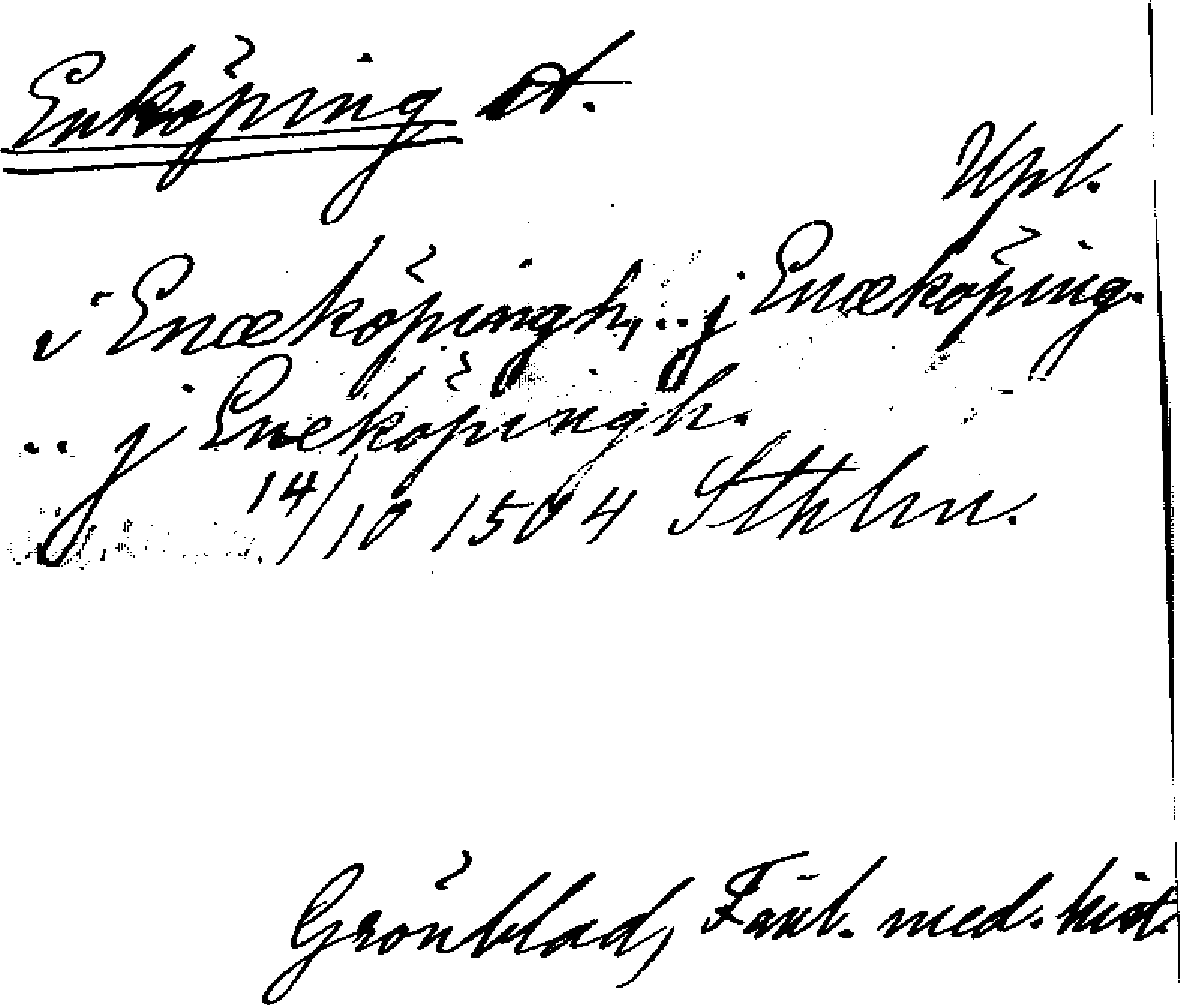 Enköping st.
Upl.
i Enæköpingh, .. j Enæköping.
.. j Eneköpingh.
14/10 1504 Sthlm.
Grönblad, Finl. med. hist.